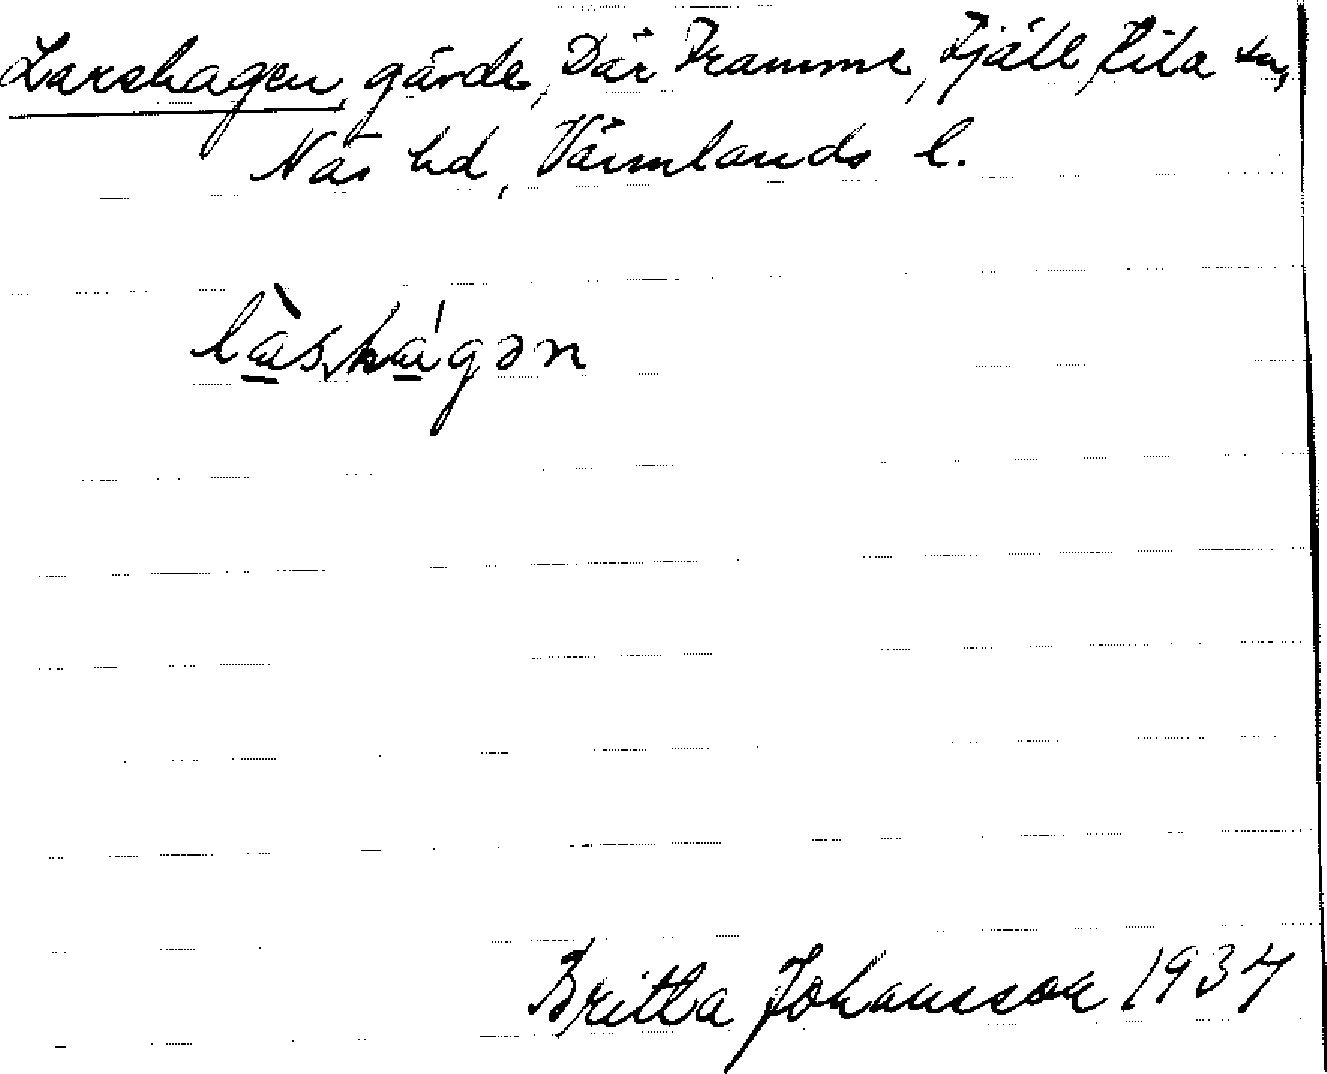 Larshagen, gärde, Där Framme, Fjäll, Kila sn,
Näs hd, Värmlands l.
là̱sha̱'gən
Britta Johansson 1934